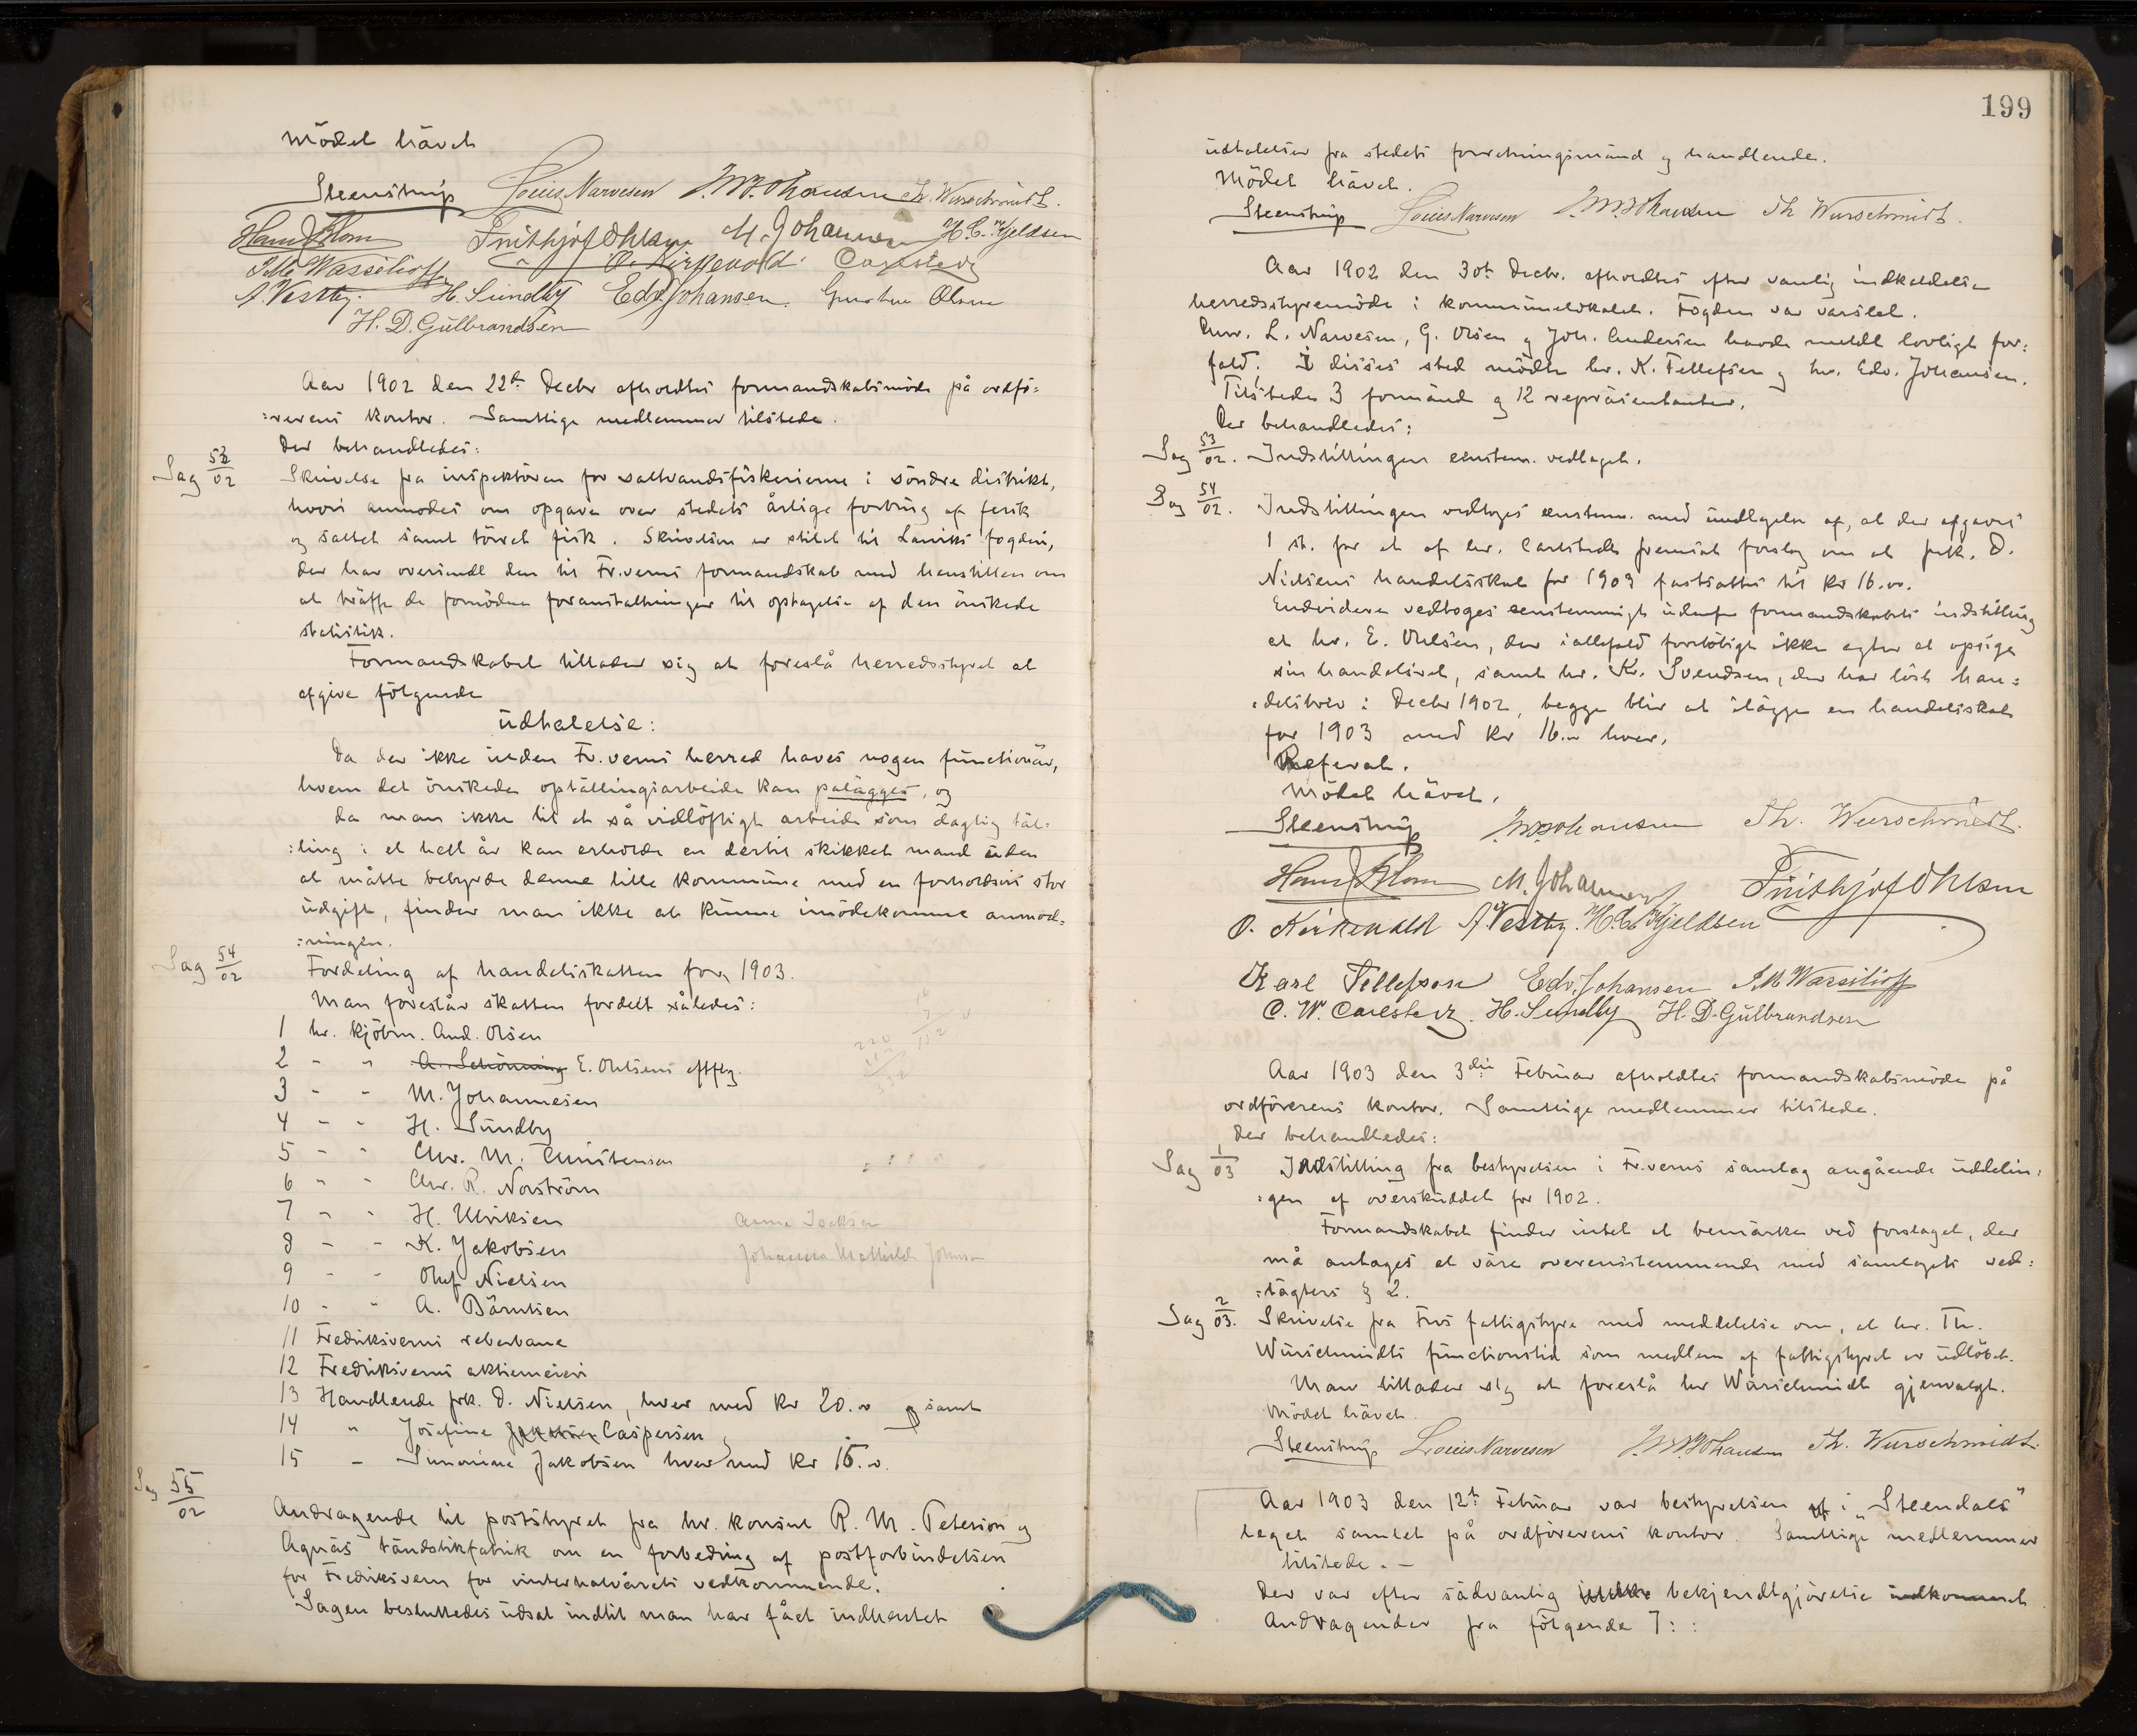 Mödet hävet
Steenstrup Louis Narvesen J. M. Johansen Th. Wurschmidt.
Hans J Blom Frithjof Ohlsen M. Johannesen H. C. Kjeldsen
J. M. Wassilioff O. Kirkevold. Carlstedt
A. Vestby. H. Sundby Edv. Johansen. Gustav Olsen
H. D. Gulbrandsen
Aar 1902 den 22de Decbr afholdtes formandskabsmöde på ordfö=
=rerens kontor. Samtlige medlemmer tilstede.
Der behandledes:
Sag 53/02 Skrivelse fra inspektören for saltvandsfiskerierne i söndre distrikt,
hvori anmodes om opgave over stedets årlige forbrug af fersk
og saltet samt törret fisk. Skrivelsen er stilet til Larviks fogderi,
der har oversendt den til Fr.verns formandskab med henstillen om
at träffe de fornödne foranstaltninger til optagelse af den önskede
statistik.
Formandskabet tillader sig at foreslå herredsstyret at
afgive fölgende
udtalelse:
Da der ikke inden Fr.verns herred haves nogen functionär,
hvem det önskede optällingsarbeide kan pålägges, og
da man ikke til et så vidlöftigt arbeide som daglig täl=
=ling i et helt år kan erholde en dertil skikket mand uden
at måtte bebyrde denne lille kommune med en forholdsvis stor
udgift, finder man ikke at kunne imödekomme anmod=
=ningen.
Sag 54/02 Fordeling af handelsskatten for 1903.
Man foreslår skatten fordelt således:
1 hr. kjöbm. And. Olsen
2 - " A. Schönning E. Ohlsens efftlg.
3 - - M. Johannesen
4 - - H. Sundby
5 - - Chr. M. Christensen
6 - - Chr. R. Norström
7 - - H. Ulriksen
8 - - K. Jakobsen
9 - - Oluf Nielsen
10 - - A. Bärntsen
11 Fredriksverns reberbane
12 Fredriksverns aktiemeieri
13 Handlende frk. D. Nielsen, hver med Kr 20.oo og samt
14 " Josefine Caspersen
15 - Simonine Jakobsen hver med Kr 16.oo.
Anna Isaksen
Johanna Mathilde Johnsen
Sag 55/02 Andragende til poststyret fra hr. konsul R. M. Peterson og
Agnäs tändstikfabrik om en forbedring af postforbindelsen
for Fredriksvern for vinterhalvårets vedkommende.
Sagen besluttedes udsat indtil man har fået indhentet
199
udtalelser fra stedets forretningsmänd og handlende.
Mödet hävet.
Steenstrup Louis Narvesen J. M. Johansen Th Wurschmidt.
Aar 1902 den 30te Decbr. afholdtes efter vanlig indkaldelse
herredsstyremöde i kommunelokalet. Fogden var varslet.
Hrr. L. Narvesen, G. Olsen og Joh. Andersen havde meldt lovligt for=
fald. I disses sted mödte hr. K. Tellefsen og hr. Edv. Johansen.
Tilstede 3 formänd og 12 repräsentanter.
Der behandledes:
Sag 53/02. Indstillingen eenstem. vedtaget.
Sag 54/02. Indstillingen vedtoges eenstem. med undtagelse af, at der afgaves
1 st. for et af hr. Carlstedt fremsat forslag om at frk. D.
Nielsens handelsskat for 1903 fastsattes til Kr 16.oo.
Endvidere vedtoges eenstemmigt udenfor formandskabets indstilling
at hr. E. Ohlsen, der iallefald foreløbigt ikke agter at opsige
sin handelsret, samt hr. Kr. Svendsen, der har löst han=
=delsbrev i Decbr 1902, begge blir at ilägge en handelsskat
for 1903 med Kr 16.oo hver.
Referat.
Mödet hävet.
Steenstrup J. M. Johansen Th. Wurschmidt.
Hans J Blom M. Johannesen Frithjof Ohlsen
O. Kirkevold A. Vestby. H. C. Kjeldsen
Karl Tellefsen Edv. Johansen J. M. Wassilioff
C. W. Carlstedt. H. Sundby H. D. Gulbrandsen
Aar 1903 den 3die Februar afholdtes formandskabsmöde på
ordförerens kontor. Samtlige medlemmer tilstede.
Der behandledes:
Sag 1/03 Indstilling fra bestyrelsen i Fr.verns samlag angående uddelin=
=gen af overskuddet for 1902.
Formandskabet finder intet at bemärke ved forslaget, der
må antages at väre overensstemmende med samlagets ved=
=tägters § 2.
Sag 2/03. Skrivelse fra Frvs fattigstyre med meddelelse om, at hr. Th.
Wurschmidts functionstid som medlem af fattigstyret er udlöbet.
Man tillader sig at foreslå hr Wurschmidt gjenvalgt.
Mödet hävet.
Steenstrup Louis Narvesen J. M. Johansen Th. Wurschmidt.
Aar 1903 den 12te Februar var bestyrelsen af i "Steendals"
legat samlet på ordförerens kontor. Samtlige medlemmer
tilstede. -
Der var efter sädvanlig bekjendtgjörelse indkommet
Andragender fra fölgende 7: :